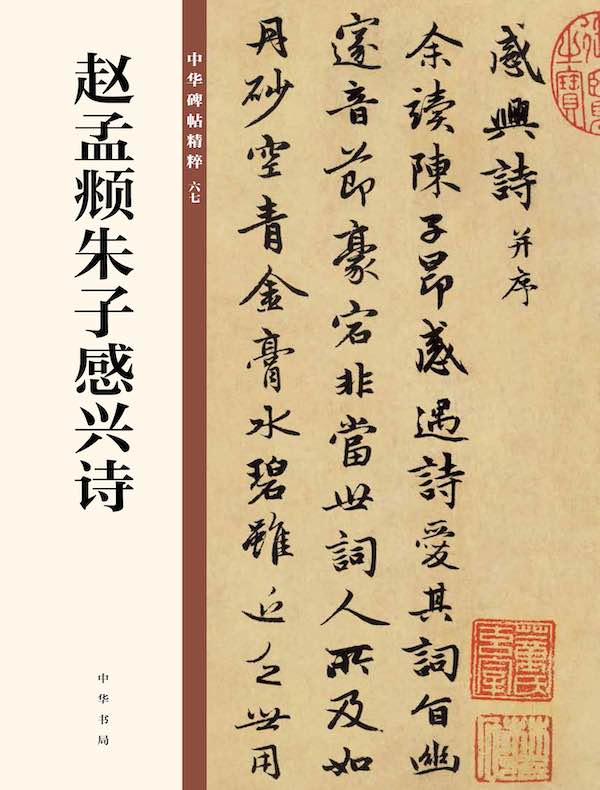 赵孟頫朱子感兴诗
中华书局
中华碑帖精粹 六七
感興詩 并序
余讀陳子昂感遇詩愛其詞旨幽
邃音節豪宕非當世詞人所及如
丹砂空青金膏水碧雖近乏世用